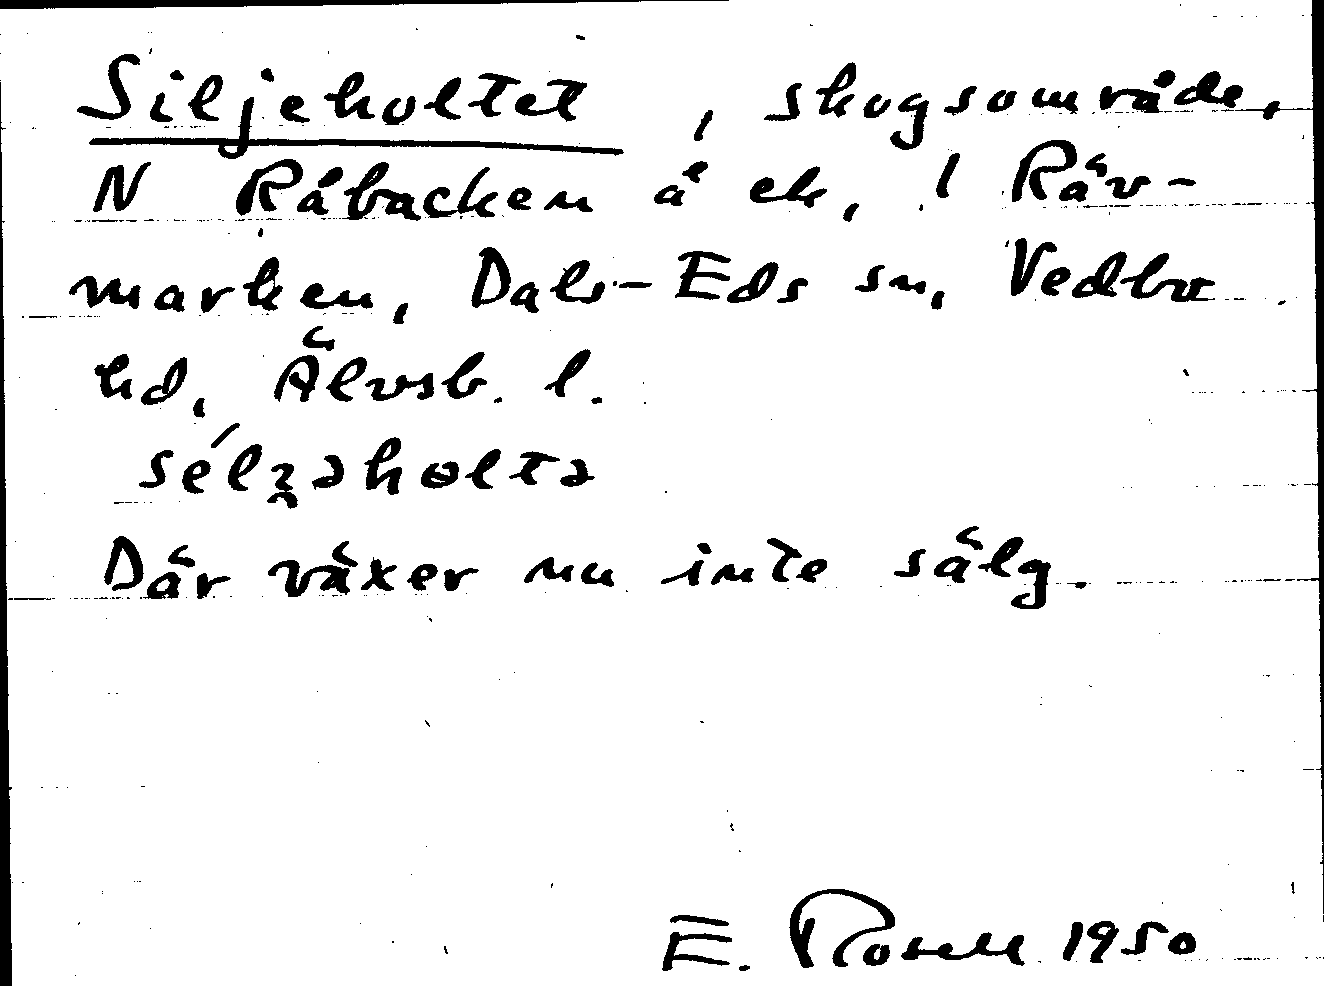 Siljeholtet, skogsområde,
N Råbacken å ek, 1 Räv-
marken, Dals-Eds sn, Vedbo
hd, Älvsb. l.
sélʒəholtə
Där växer nu inte sälg.
E. Rosell 1950